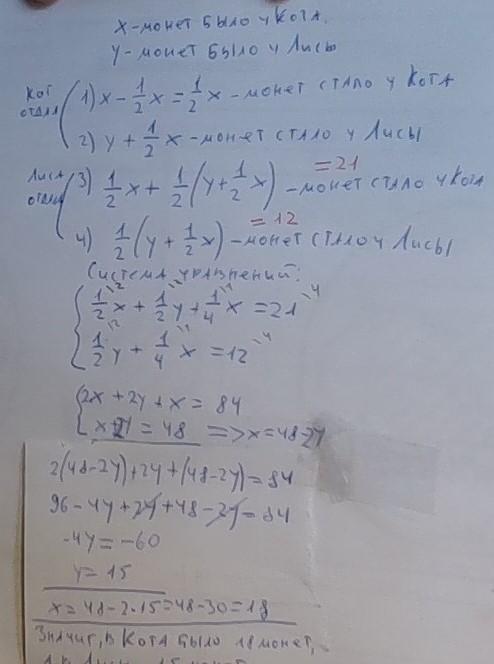 x-монет было у Кота.
y-монет было у Лисы
Кот отдал 1) x - 1/2 x = 1/2 x - монет стало у Кота
2) y + 1/2 x - монет стало у Лисы
Лиса отдала 3) 1/2 x + 1/2 (y + 1/2 x) = 21 - монет стало у Кота
4) 1/2 (y + 1/2 x) = 12 - монет стало у Лисы
Система уравнений:
1/2 x \2 + 1/2 y \2 + 1/4 x \1 = 21 \4
1/2 y \2 + 1/4 x \1 = 12 \4
2x + 2y + x = 84
x + 2y = 48 => x = 48-2y
2(48-2y)+2y+(48-2y)=84
96-4y+2y+48-2y=84
-4y=-60
y=15
x=48-2·15=48-30=18
Значит, в Кота было 18 монет,